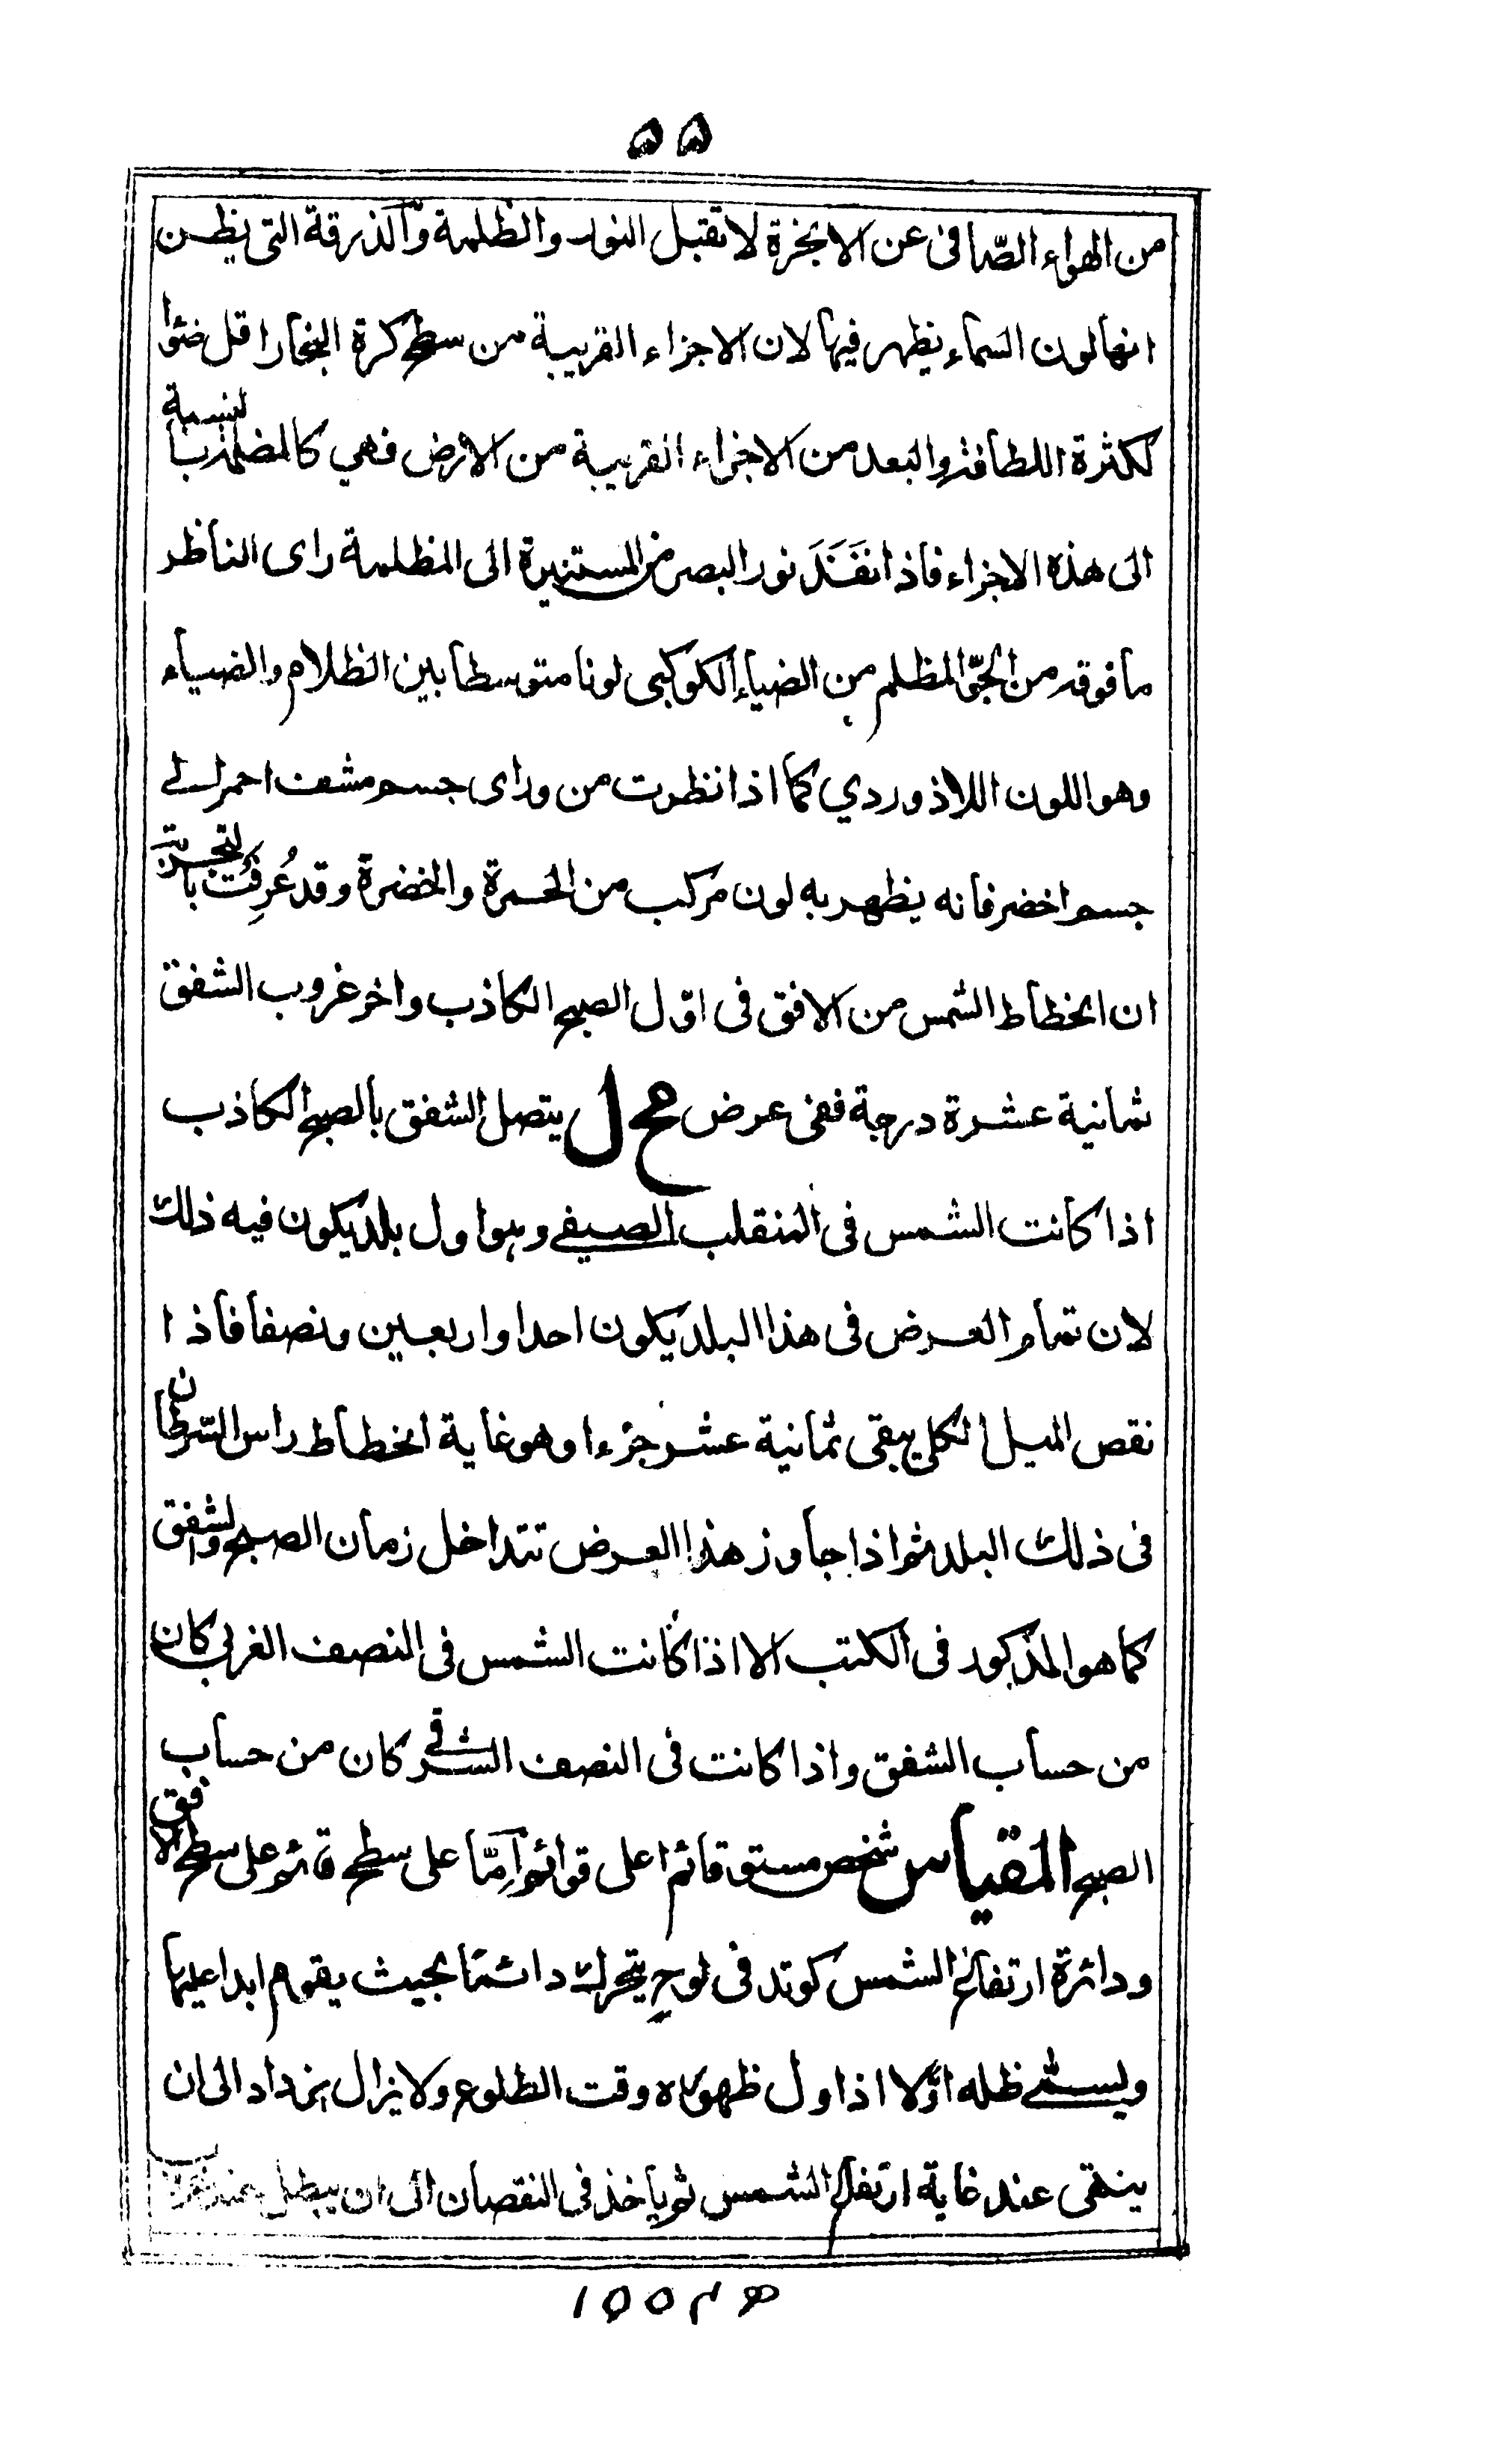 ۵۵
من الهواء الصّافى عن الابخرة لا تقبل النور والظلمة وّالذرقة التى يظن
انهالون السماء يظهر فيها لان الاجزاء القريبة من سطح كرة البخار اقل ضئوا
لكثرة اللطافة والبعد من الاجزاء القريبة من الارض فهي كالمظلمة بالنسبة
الى هذه الاجزاء فاذا نفَذَ نور البصر من المستنيرة الى المظلمة راى الناظر
ما فوقه من الجوّ المظلم من الضياء الكوكبى لونا متوسطا بين الظلام والضياء
وهو اللون اللاذوردي كما اذا نظرت من وراى جسم مشف احمر الے
جسم اخضر فانه يظهر به لون مركب من الحمرة والخضرة وقد عُرِفَت بالتجربة
ان انحطاط الشمس من الافق فى اوّل الصبح الكاذب واخر غروب الشفق
ثمانية عشرة درجة ففى عرض مح ل يتصل الشفق بالصبح الكاذب
اذا كانت الشمس فى المنقلب الصيفے وهو اول بلد يكون فيه ذلك
لان تمام العرض فى هذا البلد يكون احدا واربعين ونصفا فاذا
نقص الميل الكلى يبقى ثمانية عشر جزءا وهو غاية انحطاط راس السّرطان
فى ذلك البلد ثم اذا جاوز هذا العرض تتداخل زمان الصبح والشفق
كما هو المذكور فى الكتب الا اذا كانت الشمس فى النصف الغربى كان
من حساب الشفق واذا كانت فى النصف الشرقے كان من حساب
الصبح المقياس شخص مستو قائم اعلى قوائم اِمّا على سطح قائم على سطح الافق
ودائرة ارتفاع الشمس كوتد فى لوحٍ يتحرك دائما بحيث يقوم ابدا عليها
ويسمّے ظله اوّلا اذ اول ظهوره وقت الطلوع ولا يزال يزداد الى ان
ينتهى عند غاية ارتفاع الشمس ثم ياخذ فى النقصان الى ان يبطل عند